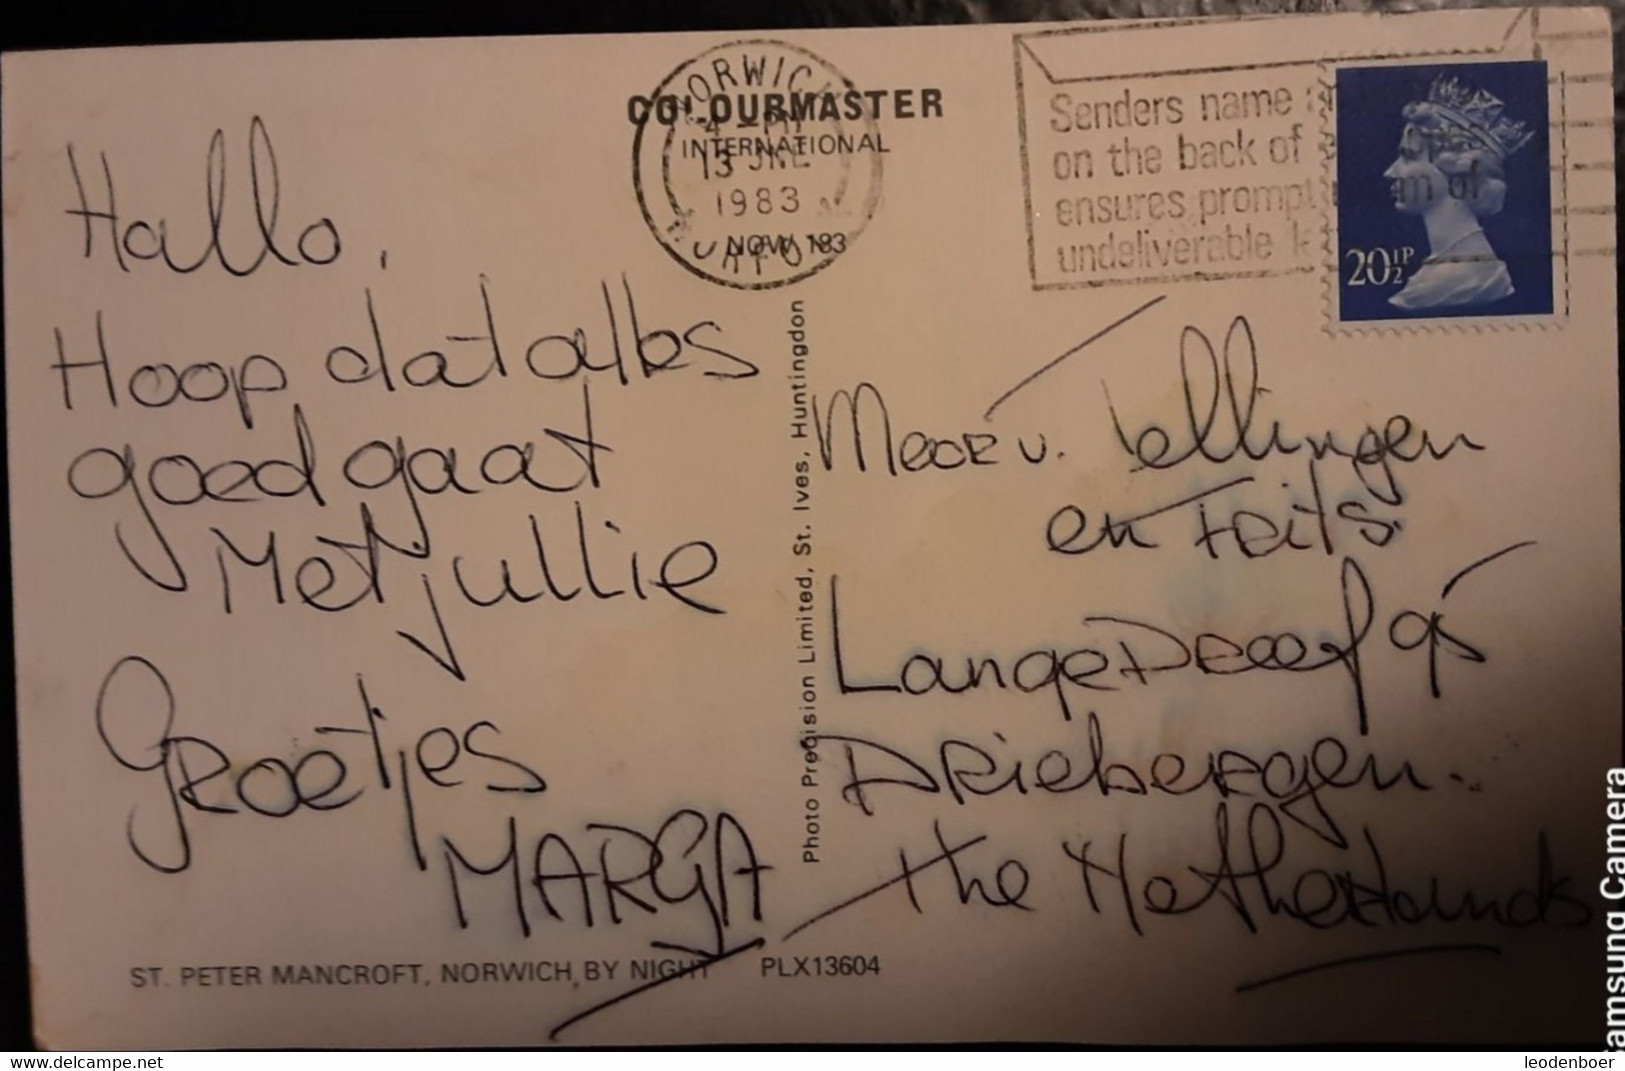 COLOURMASTER
INTERNATIONAL
NORWICH
4 - PM
13 JNE
1983
NOW 183
Senders name
on the back of
ensures prompt
undeliverable
20½P
Hallo,
Hoop dat alles
goed gaat
Met jullie
Groetjes
MARGA
ST. PETER MANCROFT, NORWICH, BY NIGHT PLX13604
Photo Precision Limited, St. Ives, Huntingdon
Mevr v. Tellingen
en Frits.
Lange Dreef 95
Driebergen.
the Netherlands
Samsung Camera
delcampe.net
leodenboer